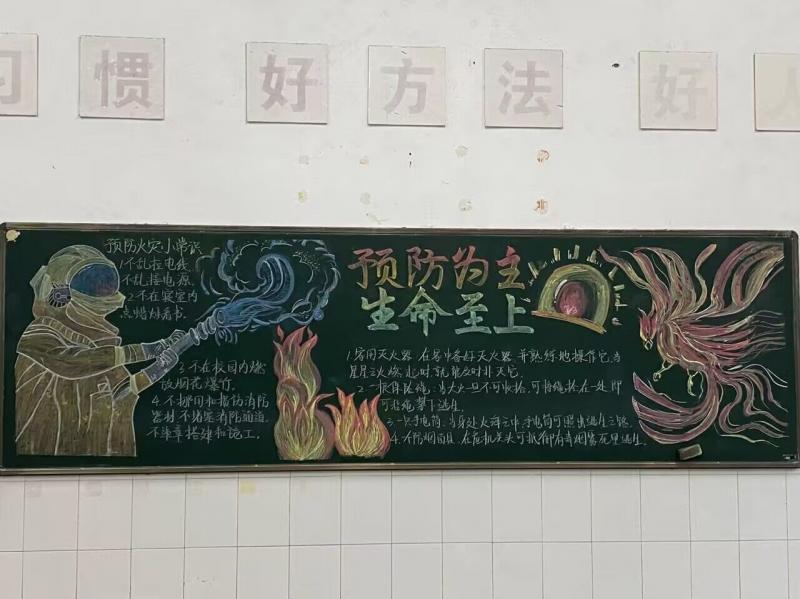 习 惯 好 方 法 好 人
预防火灾小常识
1.不乱拉电线
不乱接电源
2.不在寝室内
点蜡烛看书.
3.不在校园内燃
放烟花爆竹.
4.不挪用和损伤消防
器材不堵塞消防通道
不违章搭建和施工.
预防为主
生命至上
1.家用灭火器.在家中备好灭火器.并熟练地操作它.当
星星之火燃起时.就能及时扑灭它.
2.一根保险绳.当大火一旦不可收拾.可将绳拴在一处.即
可沿绳攀下逃生.
3.一只手电筒.当身处火海之中.手电筒可照出逃生之路.
4.有防烟面具.在危机关头可抵御有毒烟雾